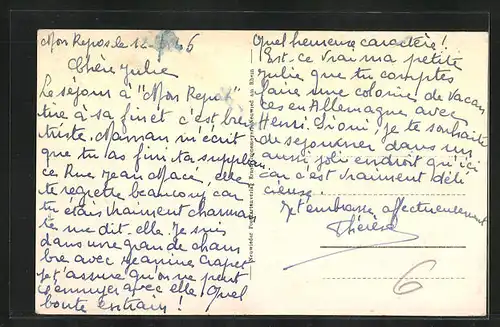 Mon Repos le 12 46
Chère Julie
Le séjour à "Mon Repos"
tire à sa fin et c'est bien
triste. Maman m'écrit
que tu as fini ta suppléan
ce Rue Jean Macé, elle
te regrette beaucoup car
tu étais vraiment charman
te me dit-elle. Je suis
dans une grande cham
bre avec Jeanine
et je t'assure qu'on ne peut
s'ennuyer avec elle. Quel
boute en train!
Quel heureuse caractère!
Est-ce vrai ma petite
Julie que tu comptes
faire une colonie de vacan
ces en Allemagne avec
Henri. Si oui, je te souhaite
de séjourner dans un
aussi joli endroit qu'ici
car c'est vraiment déli
cieuse.
Je t'embrasse affectueusement
Thérèse
6